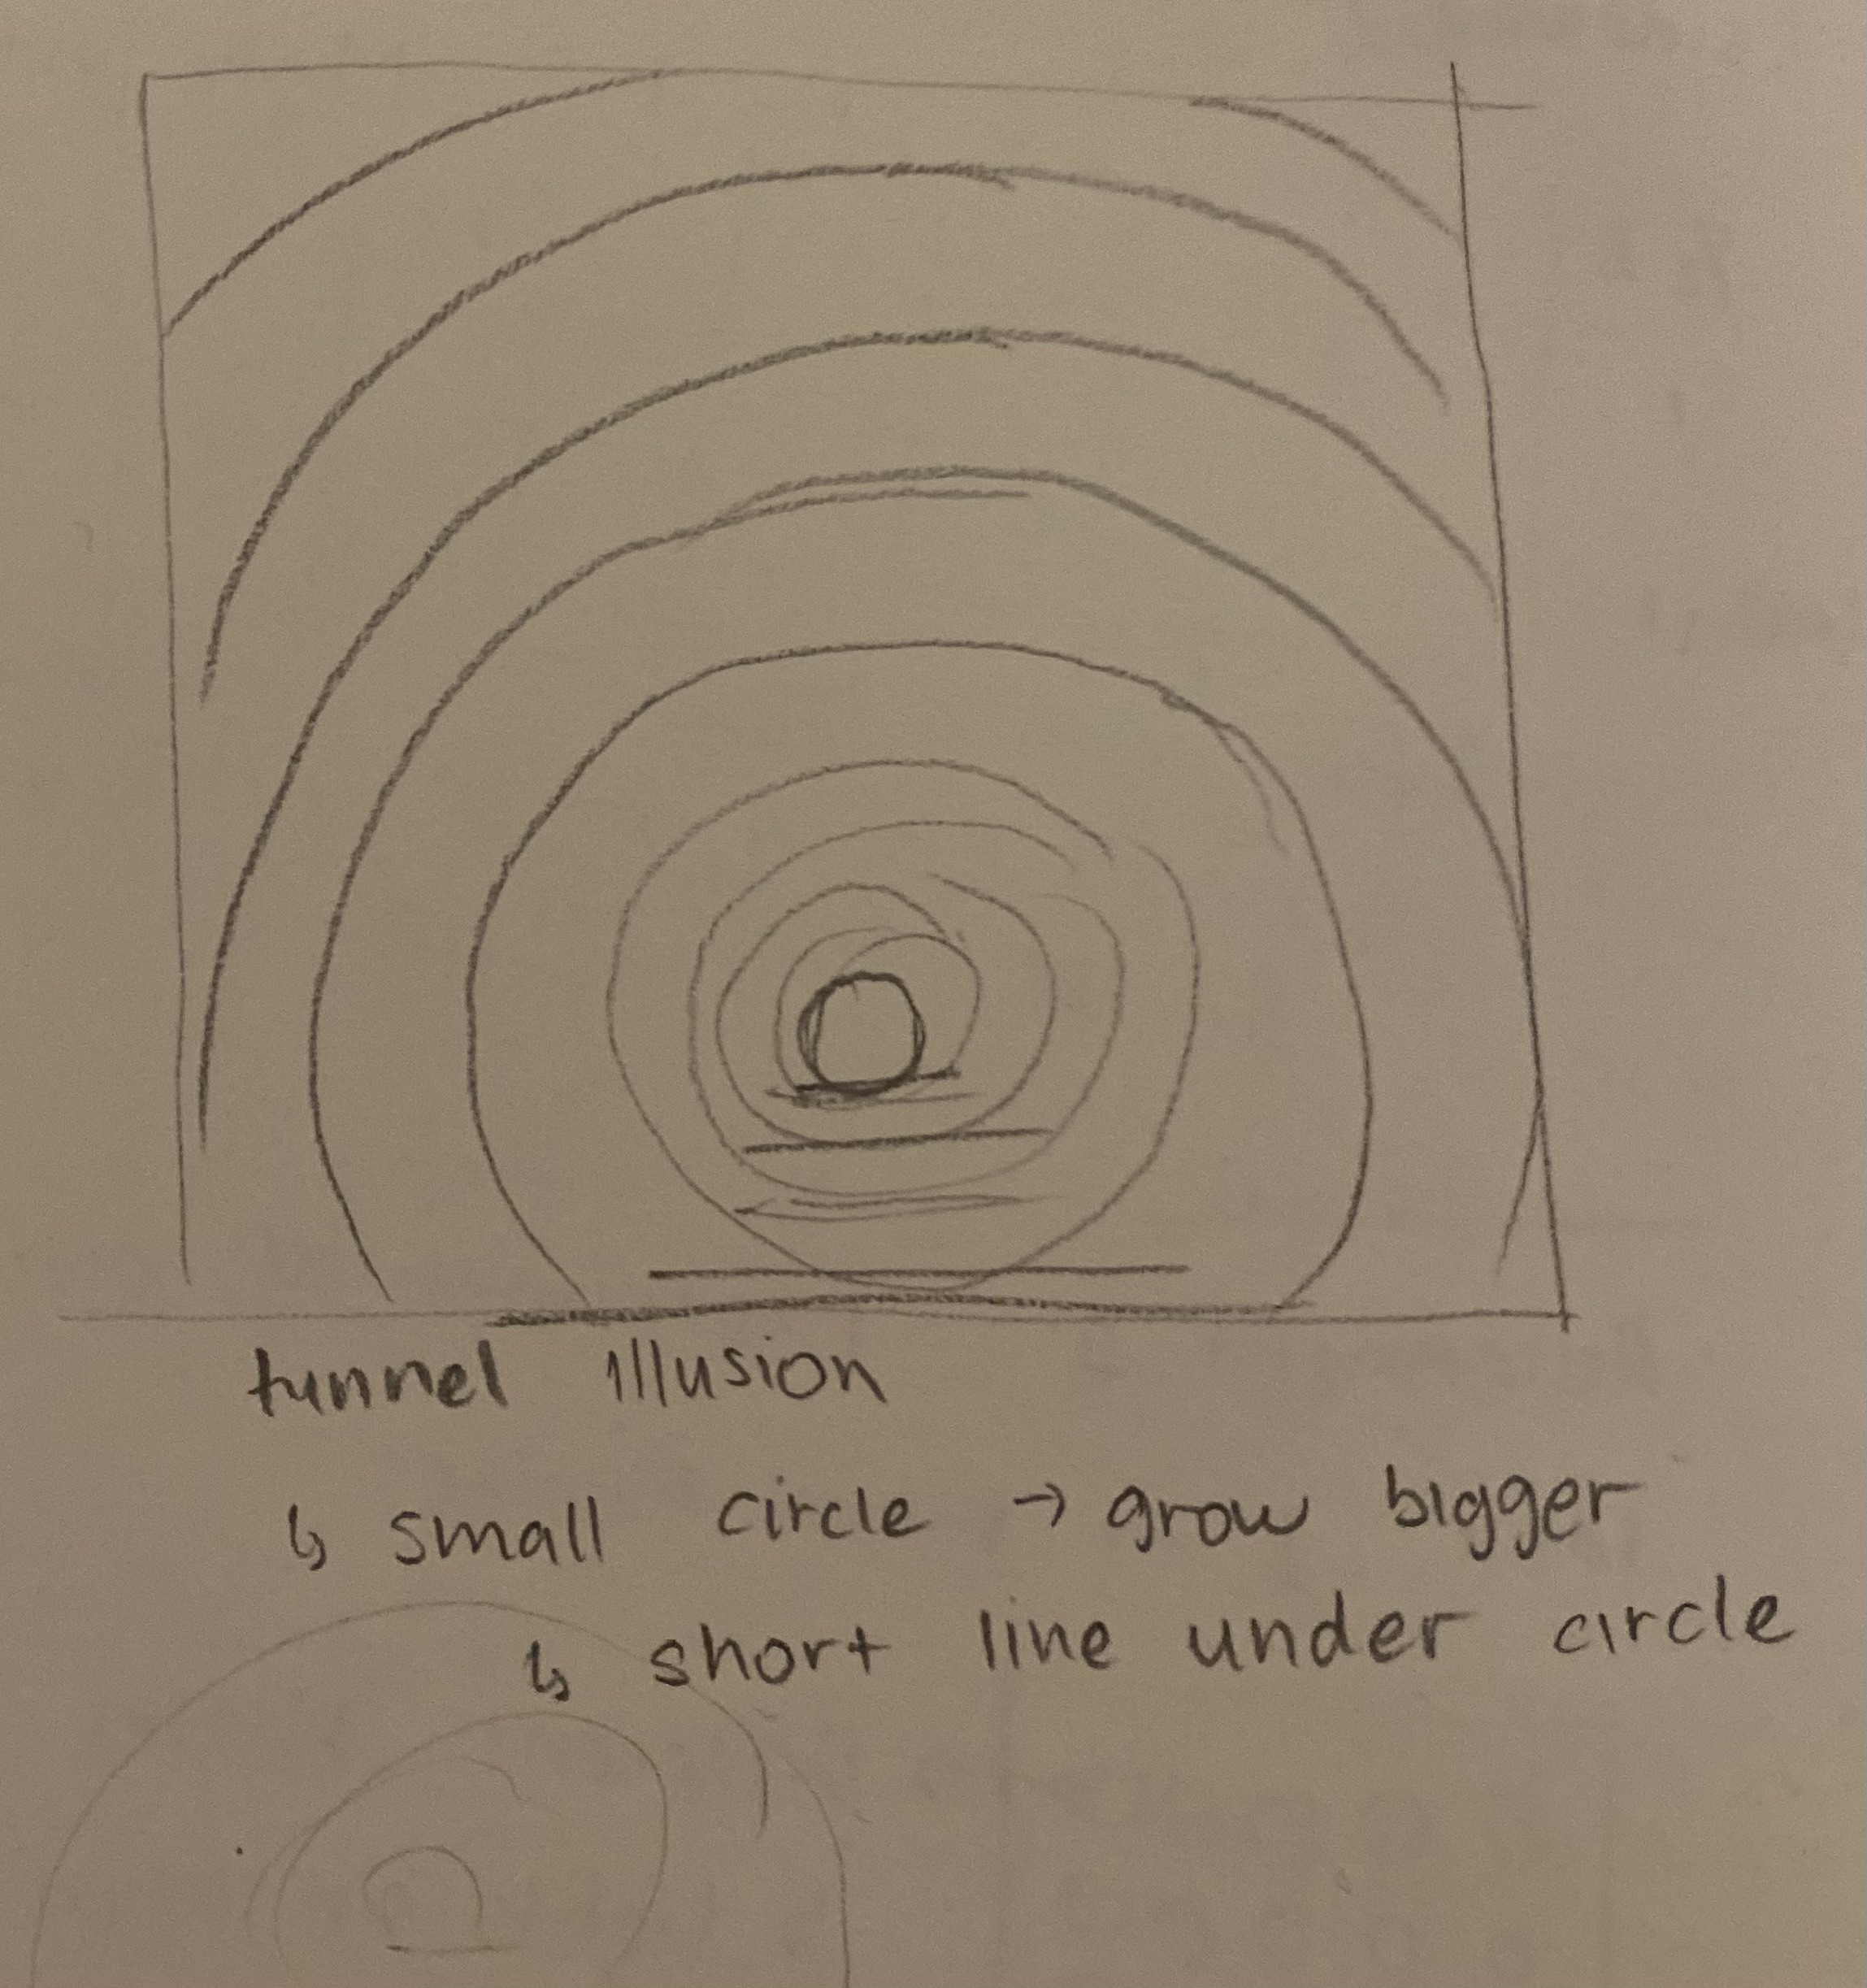 tunnel illusion
↳ small circle → grow bigger
↳ short line under circle